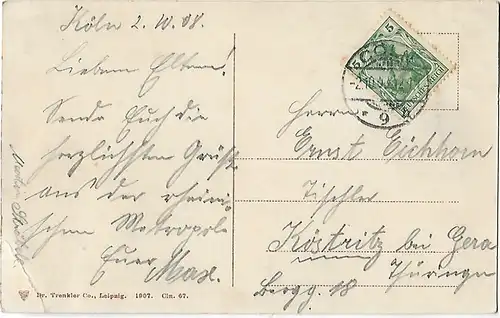 Köln 2. 10. 08.
Liebe Eltern!
Sende Euch die
herzlichsten Grüße
aus der rheini-
schen Metropole
Euer Max.
Dr. Trenkler Co., Leipzig. 1907. Cln. 67.
5
CÖLN
9
Herrn
Ernst Eichhorn
Tischler
Köstritz bei Gera
Bergg. 18 Thüringen